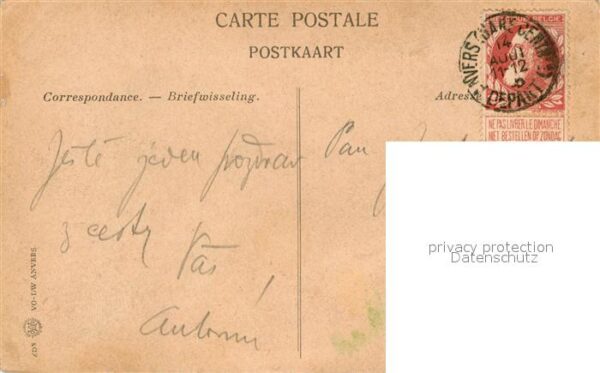 CARTE POSTALE
POSTKAART
Correspondance. — Briefwisseling.
Adress
ANVERS (GARE CENTRALE)
14
AOUT
11-12
DEPART
NE PAS LIVRER LE DIMANCHE
NIET BESTELLEN OP ZONDAG
Ještě jeden pozdrav
z cesty
Vás
Pan
VO-LW ANVERS
privacy protection
Datenschutz